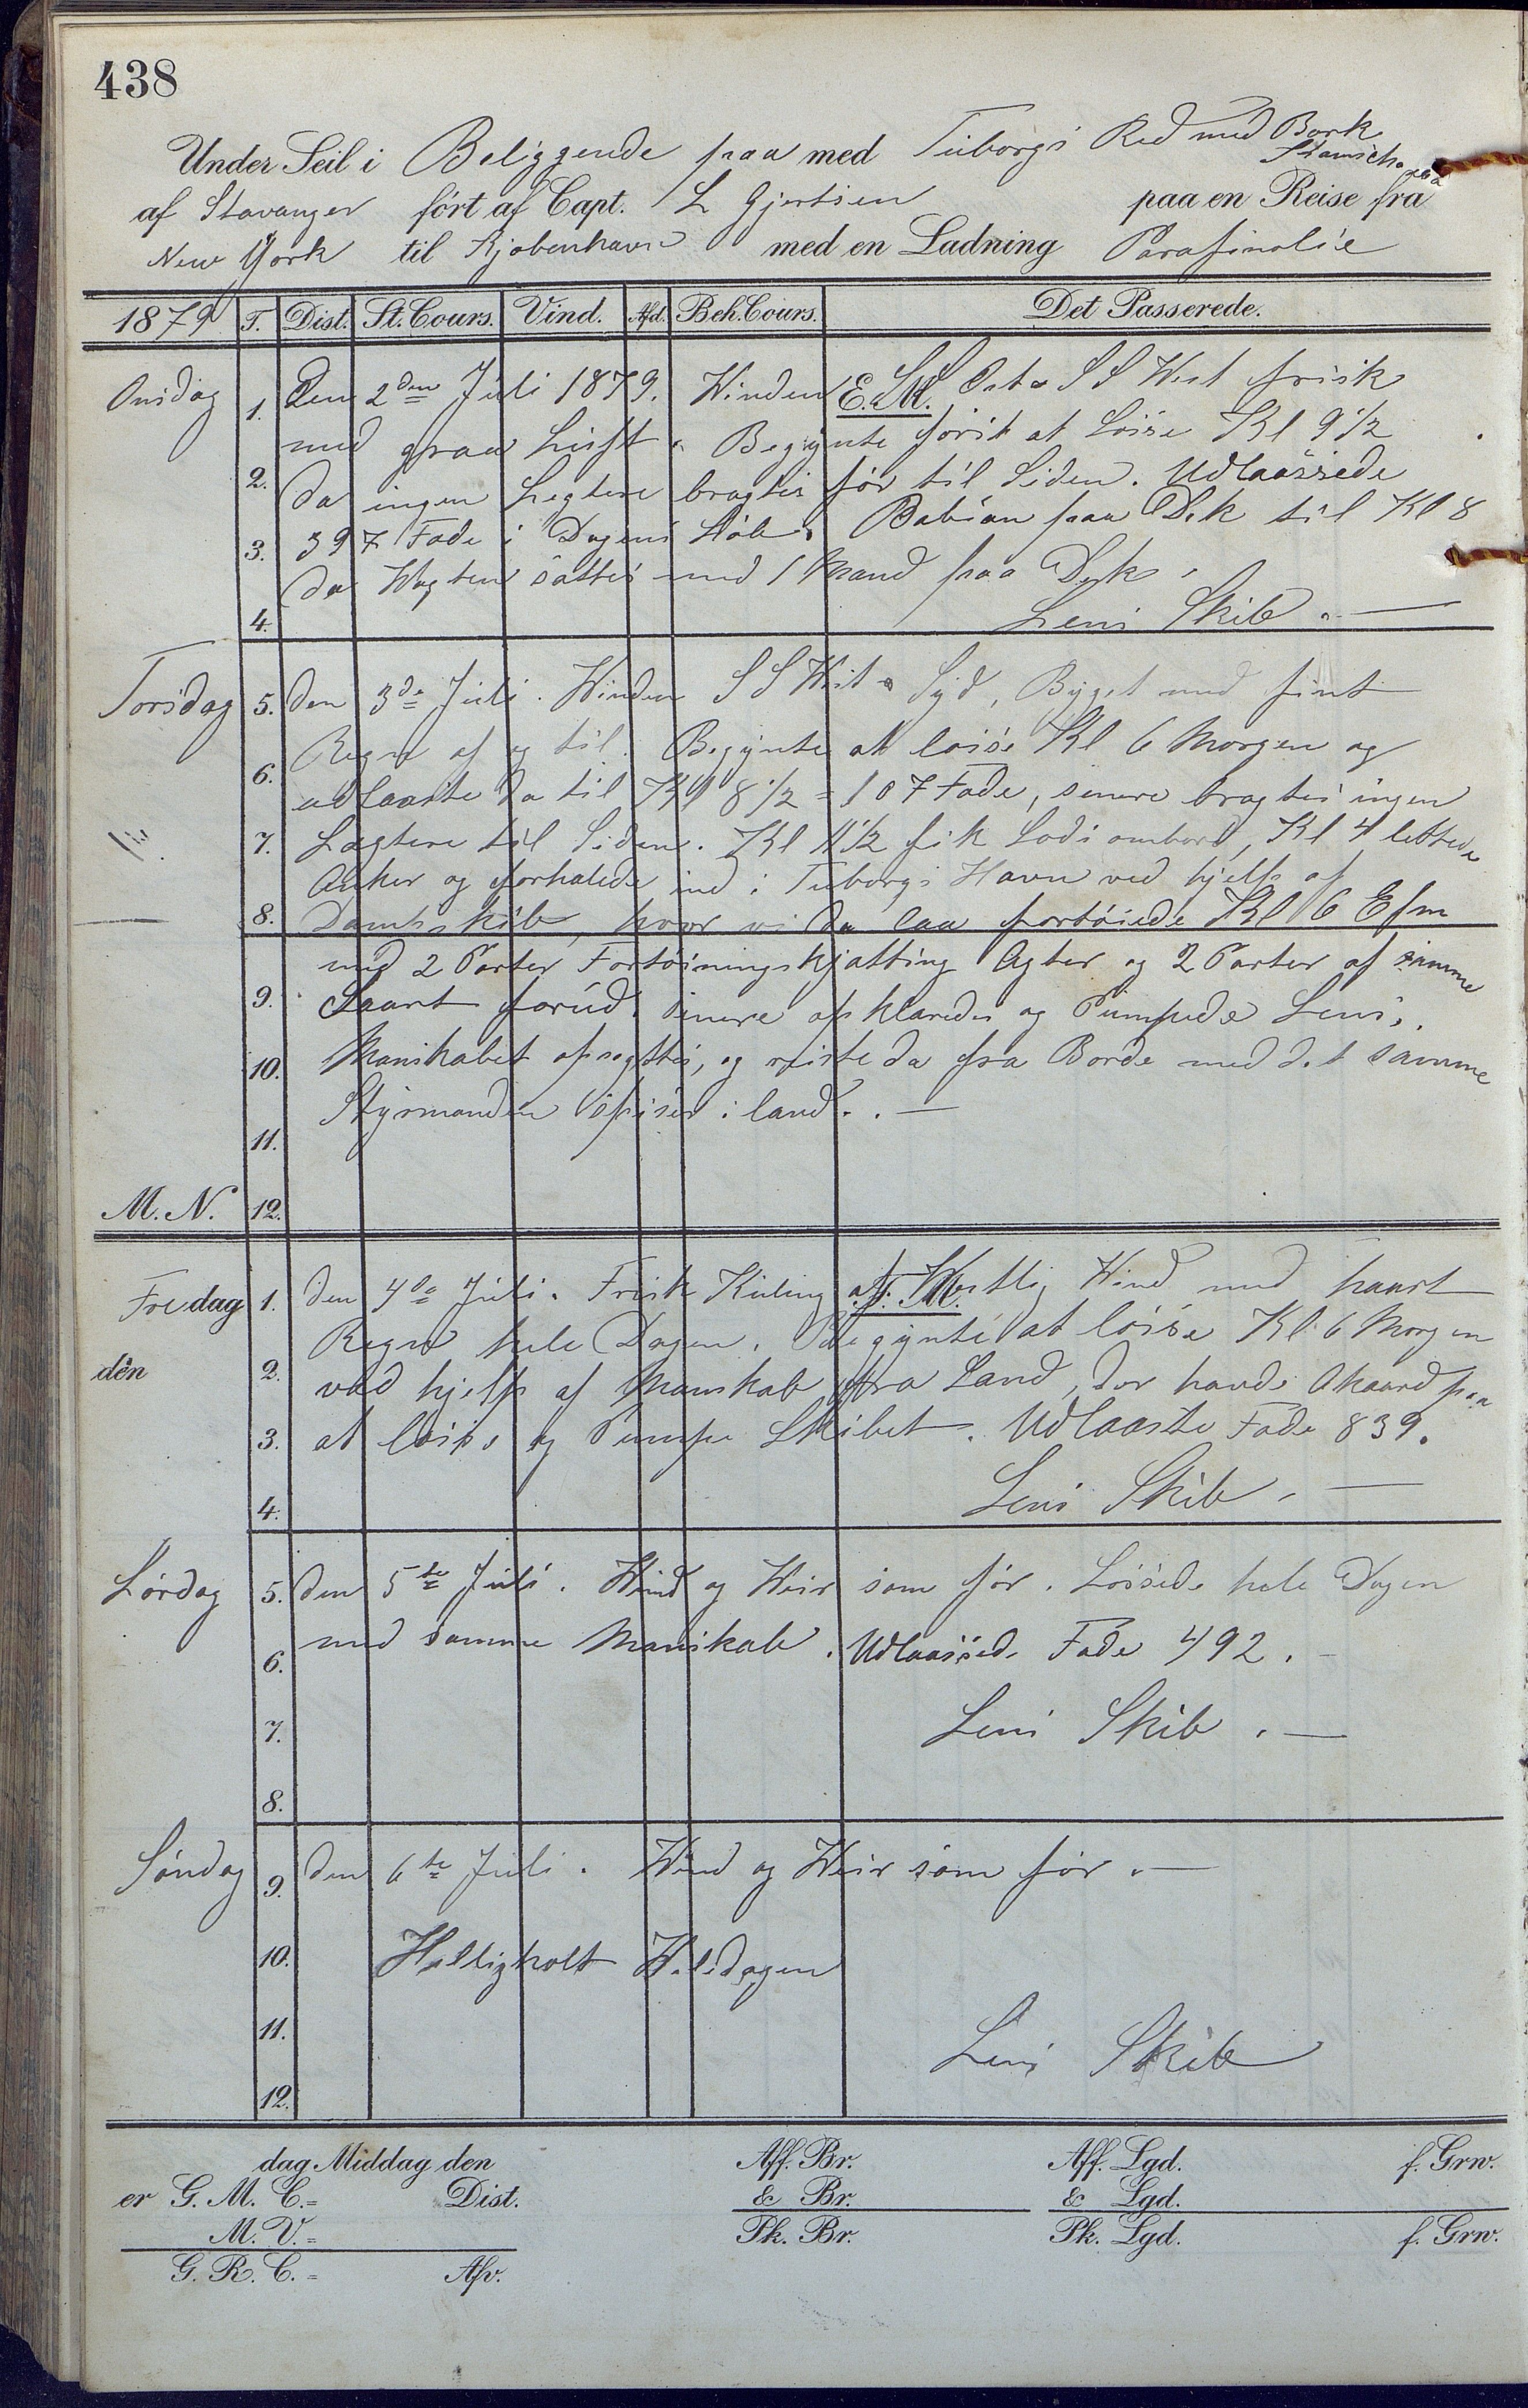 438
Under Seil i Beliggende paa med Tuborgs Red med Bark
af Stavanger ført af Capt. L Gjertsen paa en Reise fra
New York til Kjøbenhavn med en Ladning Parafinolie
1879 T. Dist. St. Cours. Vind. Afd. Beh. Cours. Det Passerede.
E.M.
Onsdag 1. Den 2den Juli 1879. Winden S Ost a SS West frisk
med graa Luft. Begynte först at Lösse Kl 9 1/2
2. da ingen Legtere bragtes för til Siden. Udlaassede
3. 397 Fade i Dagens Löb. Babian paa Dek til Kl 8
da Wagten sattes med 1 Mand paa Dek.
4. Lens Skib. —
Torsdag 5. den 3de Juli. Winden SS West a Syd, Byget med fint
6. Regn af og til. Begynte at losse Kl 6 Morgen og
udlaaste da til Kl 8 1/2 = 107 Fade, senere bragtes ingen
7. Lægtere til Siden. Kl 11 1/2 fik Lods ombord, Kl 4 lettede
Anker og forhalede ind i Tuborgs Havn ved hjelp af
8. Dampskib, hvor vi da laa fortöiede Kl 6 Efm
med 2 Parter Fortöiningskjatting Agter og 2 Parter af samme
9. Slaart forud. Senere opklaredes og Pumpede Lens.
10. Manskabet afsagttes, og reiste da fra Borde med det samme
Styrmanden spiser i land. . —
11.
M. N. 12.
F. M.
Fredag 1. den 4de Juli. Frisk Kuling af Westlig Wind med haart
Regn hele Dagen. Begynte at lösse Kl 6 Morgen
den 2. ved hjelp af Manskab fra Land, der havde Akaard paa
3. at lösse og Pumpe Skibet. Udlaaste Fade 839.
4. Lens Skib. —
Lördag 5. den 5te Juli. Wind og Weir som för. Lössede hele Dagen
6. med samme Manskab. Udlaassede Fade 492. —
7. Lens Skib. —
8.
Söndag 9. den 6te Juli. Wind og Weir som för. —
10. Helligholt Heledagen
11. Lens Skib
12.
dag Middag den Aff. Br. Aff. Lgd. f. Grw.
er G. M. C. = Dist. & Br. & Lgd.
M. V. = Pk. Br. Pk. Lgd. f. Grw.
G. R. C. = Afv.